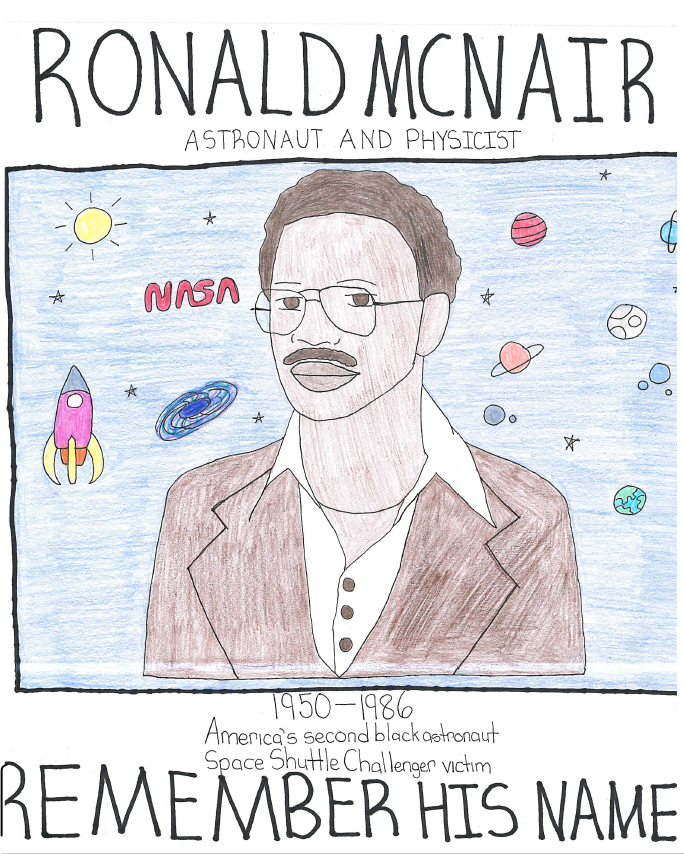 RONALD MCNAIR
ASTRONAUT AND PHYSICIST
NASA
1950-1986
America's second black astronaut
Space Shuttle Challenger victim
REMEMBER HIS NAME